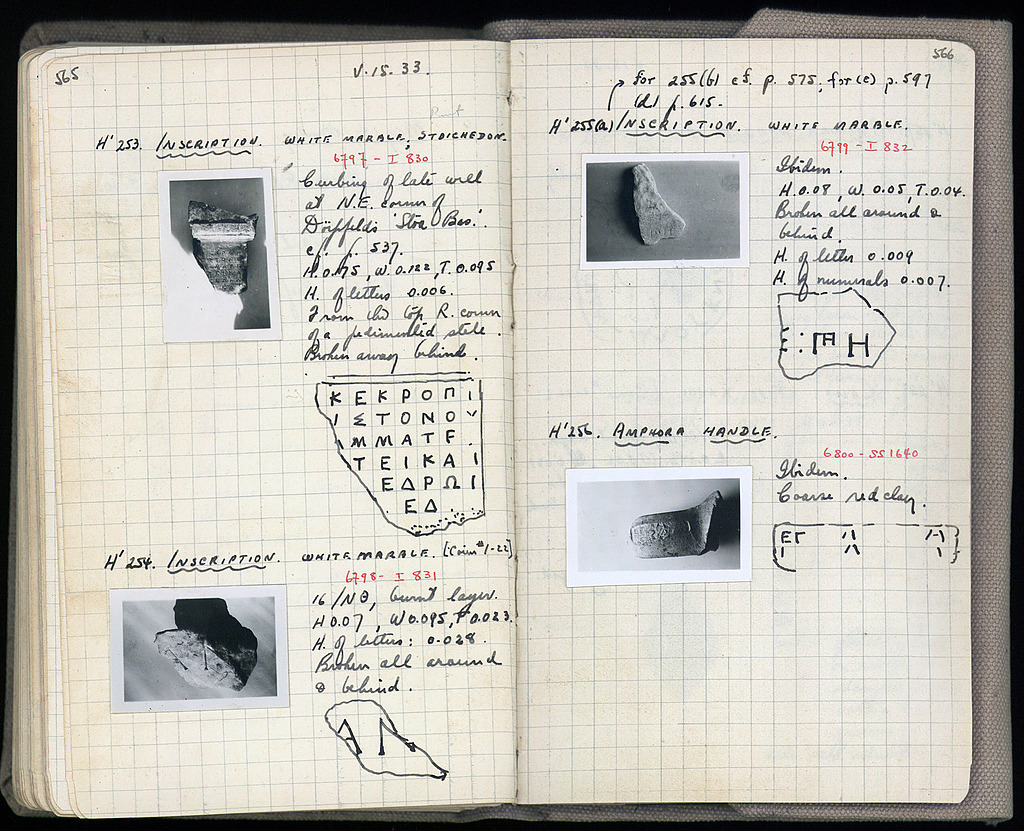 565
V. 15. 33.
H' 253. INSCRIPTION. WHITE MARBLE; STOICHEDON.
6797 - I 830
Curbing of late well
at N.E. corner of
Dörpfeld's 'Stoa Bas.'.
cf. p. 537.
H. 0.175, W. 0.122, T. 0.095
H. of letters 0.006.
From the top R. corner
of a pedimented stele.
Broken away behind.
ΚΕΚΡΟΠΙ
ΙΣΤΟΝΟΥ
ΜΜΑΤΕ.
ΤΕΙΚΑΙ
ΕΔΡΩΙ
ΕΔ
H' 254. INSCRIPTION. WHITE MARBLE. [Coins #1-22]
6798 - I 831
16/ΝΘ, burnt layer.
H 0.07, W 0.095, T 0.023.
H. of letters: 0.028.
Broken all around
& behind.
566
for 255(b) cf. p. 575; for (c) p. 597
(d) p. 615.
H' 255(a) INSCRIPTION. WHITE MARBLE.
6799 - I 832
Ibidem.
H. 0.08, W. 0.05, T. 0.04.
Broken all around &
behind.
H. of letter 0.009
H. of numerals 0.007.
H' 256. AMPHORA HANDLE.
6800 - SS 1640
Ibidem.
Coarse red clay.
ΕΓ